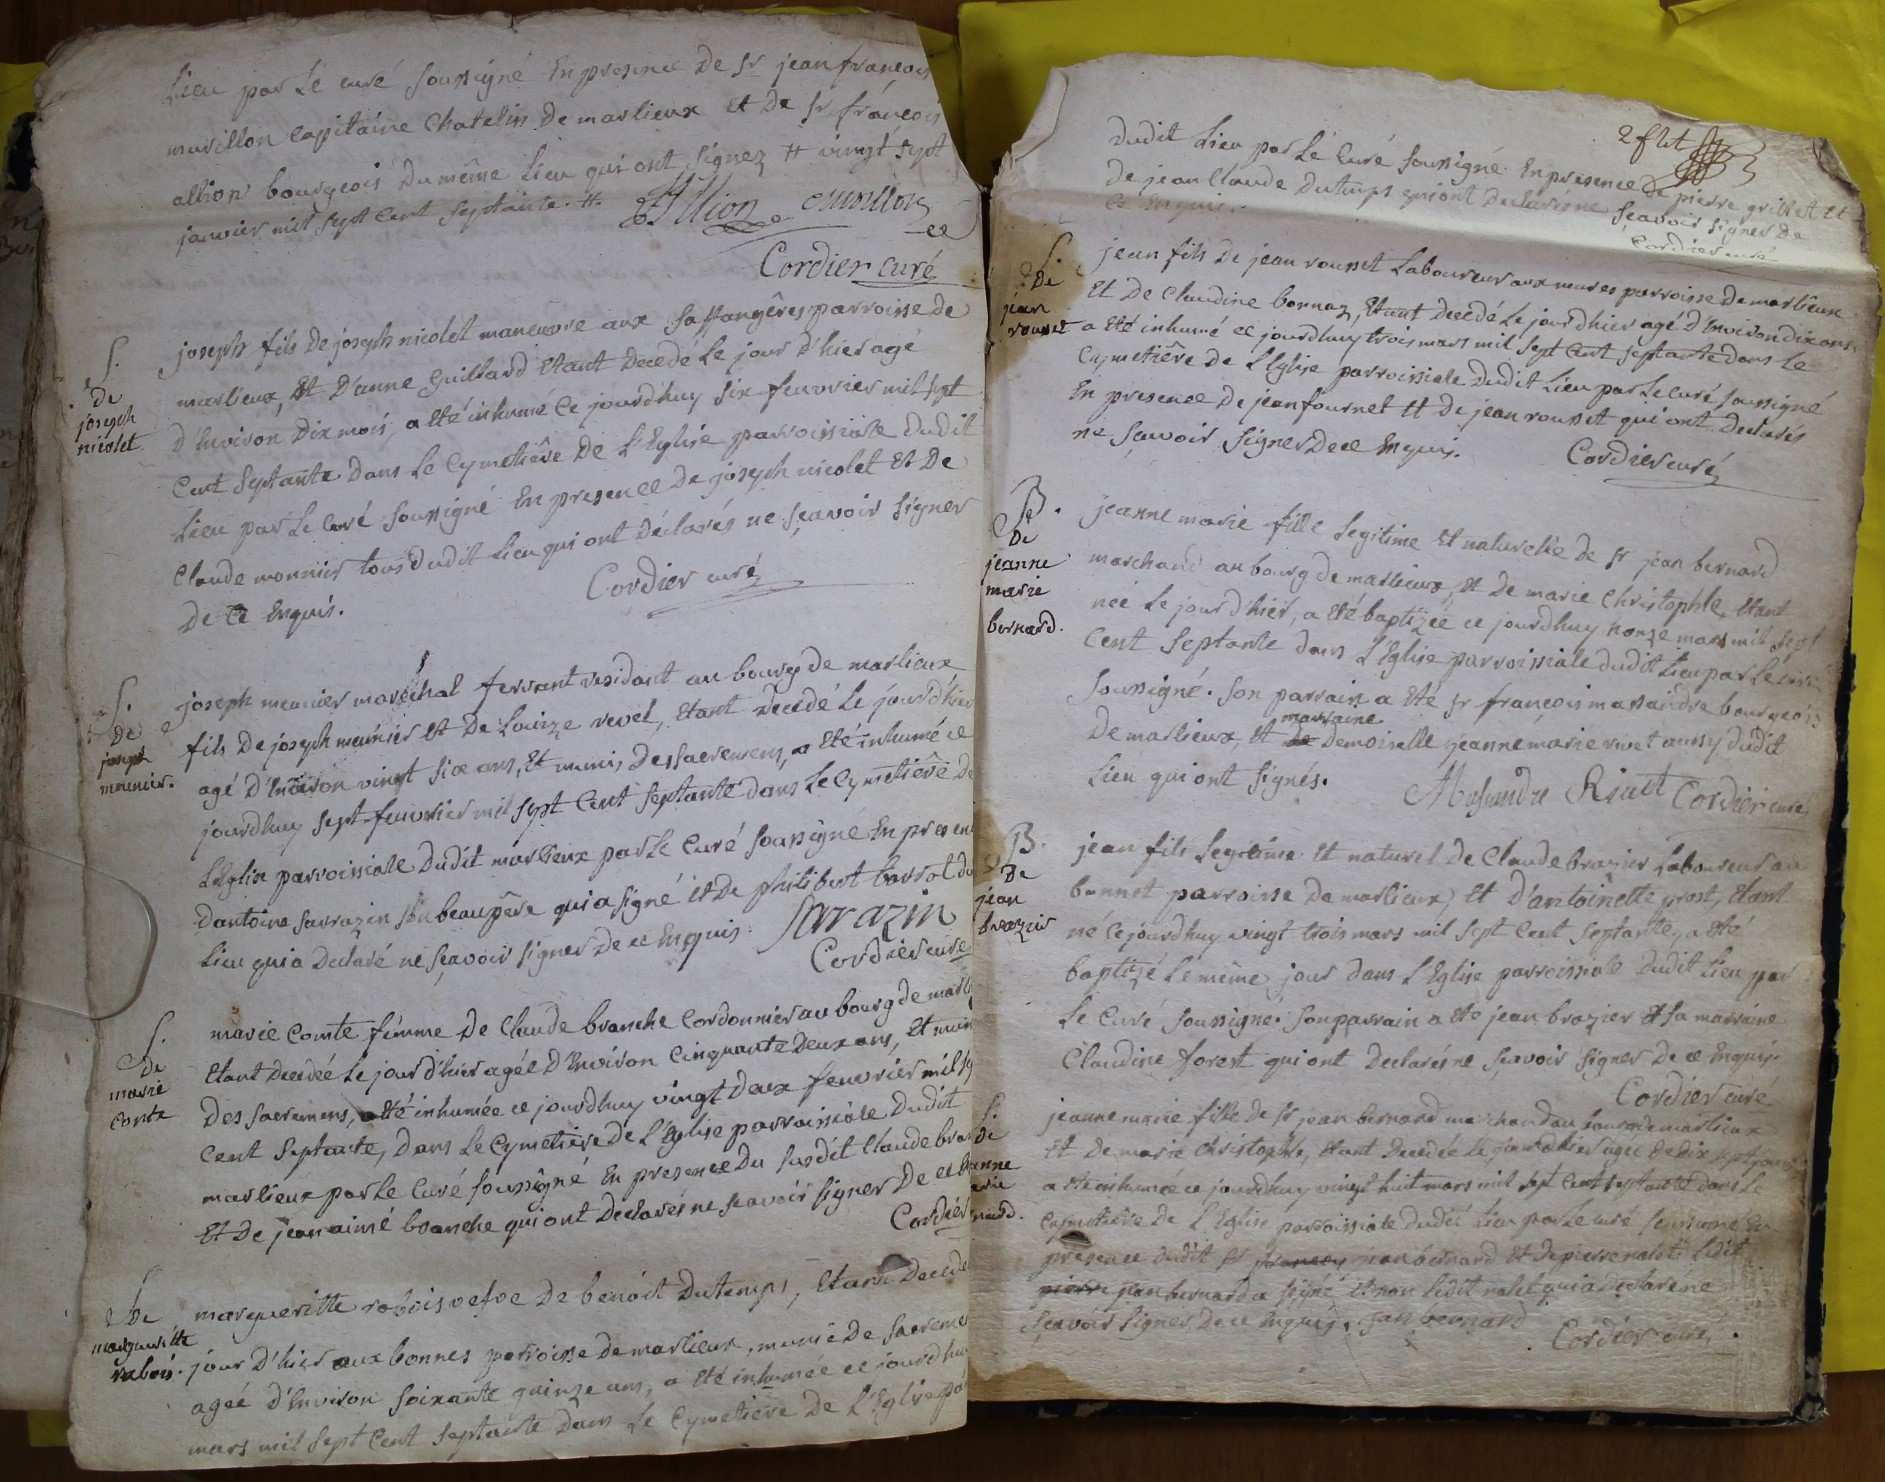 Lieu par Le curé soussigné En presence De Sr jean françois
murillon capitaine Chatelin De marlieux Et De Sr françois
allion bourgeois Du même Lieu qui ont signez # vingt sept
janvier mil sept cent septante. #. Allion Murillon
Cordier curé
S.
De
joseph
nicolet
joseph fils De joseph nicolet manœuvre aux saffangêres parroisse de
marlieux, Et D'anne Guillard Etant Decedé Le jour d'hier agé
D'Environ Dix mois, a Eté inhumé Ce jourdhuy six feuvrier mil sept
Cent Septante Dans Le Cymetiêre De L'Eglise parroissiale Dudit
Lieu par Le Curé soussigné En presence De joseph nicolet Et De
Claude monnier tous Dudit Lieu qui ont Déclarés ne sçavoir signer
De Ce Enquis.
Cordier curé
S.
De
joseph
meunier.
joseph meunier maréchal ferrant residant au bourg de marlieux
fils De joseph meunier Et De Louize revel, Etant Decedé Le jour d'hier
agé d'Environ vingt six ans, Et munis Des sacremens, a Eté inhumé ce
jourdhuy sept feuvrier mil sept Cent septante dans Le Cymetiêre De
L'Eglise parroissiale Dudit marlieux par Le Curé soussigné En presence
d'antoine sarrazin son beaupêre qui a signé Et De philibert borrol du
Lieu qui a Declaré ne sçavoir signer De ce Enquis. Sarrazin
Cordier curé
S.
De
marie
Comte
marie Comte fémme De Claude branche Cordonnier au bourg de marl
Etant Decedée Le jour d'hier agée D'Environ Cinquante Deux ans, Et munie
Des sacremens, a Eté inhumée ce jourdhuy vingt Deux feuvrier mil s
Cent Septante, Dans Le Cymetiere De L'Eglise parroissiale Dudit
marlieux par Le Curé soussigné En presence Du susdit Claude bran
Et De jean aimé branche qui ont Declarés ne sçavoir signer De ce
Cordier
De
margueritte
rabois.
margueritte rabois vefve De benoit Dutemps, Etant Decedée
jour D'hier aux bonnes parroisse De marlieux, munie De sacremens
agée d'Environ soixante quinze ans, a Eté inhumée ce jourdhuy
mars mil sept Cent septante Dans Le Cymetiêre De L'Eglise par
2 f let
dudit Lieu par Le Curé soussigné En presence De pierre grillet Et
De jean Claude Dutemps qui ont Declarés ne sçavoir signer De
Ce Enquis.
Cordier curé
S.
De
jean
rousset
jean fils De jean rousset Laboureur aux mures parroisse De marlieux
Et De Claudine bonnaz, Etant Decedé Le jour d'hier agé d'Environ dix ans
a Eté inhumé ce jourdhuy trois mars mil sept Cent septante dans Le
Cymetiêre De L'Eglise parroissiale Dudit Lieu par Le Curé soussigné
En presence De jean fournet Et De jean rousset qui ont Declarés
ne sçavoir signer De ce Enquis.
Cordier curé
B.
De
jeanne
marie
bernard.
jeanne marie fille legitime Et naturelle De Sr jean bernard
marchand au bourg de marlieux, Et De marie Christophle, Etant
née Le jour d'hier, a Eté baptizée ce jourdhuy honze mars mil sept
Cent Septante dans L'Eglise parroissiale dudit Lieu par Le curé
soussigné. son parrain a Eté Sr françois masandre bourgeois
De marlieux, Et De marraine Demoiselle jeanne marie rivet aussy dudit
Lieu qui ont signés.
Masandre Riuet Cordier curé
B.
De
jean
brazier
jean fils legitime Et naturel De Claude brazier Laboureur au
bonnet parroisse De marlieux, Et D'antoinette prost, Etant
né ce jourdhuy vingt trois mars mil sept Cent septante, a Eté
baptizé Le même jour dans L'Eglise parroissiale Dudit Lieu par
Le Curé soussigné. son parrain a Eté jean brazier Et sa marraine
Claudine forest qui ont Declarés ne sçavoir signer De ce Enquis
Cordier curé
S.
De
anne
arie
nard.
jeanne marie fille De Sr jean bernard marchand au bourg de marlieux
Et De marie Christophle, Etant Decedée Le jour d'hier agée De Dix sept jours
a Eté inhumée ce jourdhuy vingt huit mars mil sept Cent septante dans Le
Cymetiêre De L'Eglise parroissiale dudit Lieu par Le curé soussigné En
presence dudit Sr jean bernard Et De pierre nalet ledit
pierre jean bernard a signé Et non ledit nalet qui a Declaré ne
sçavoir signer De ce Enquis. jean bernard
Cordier curé